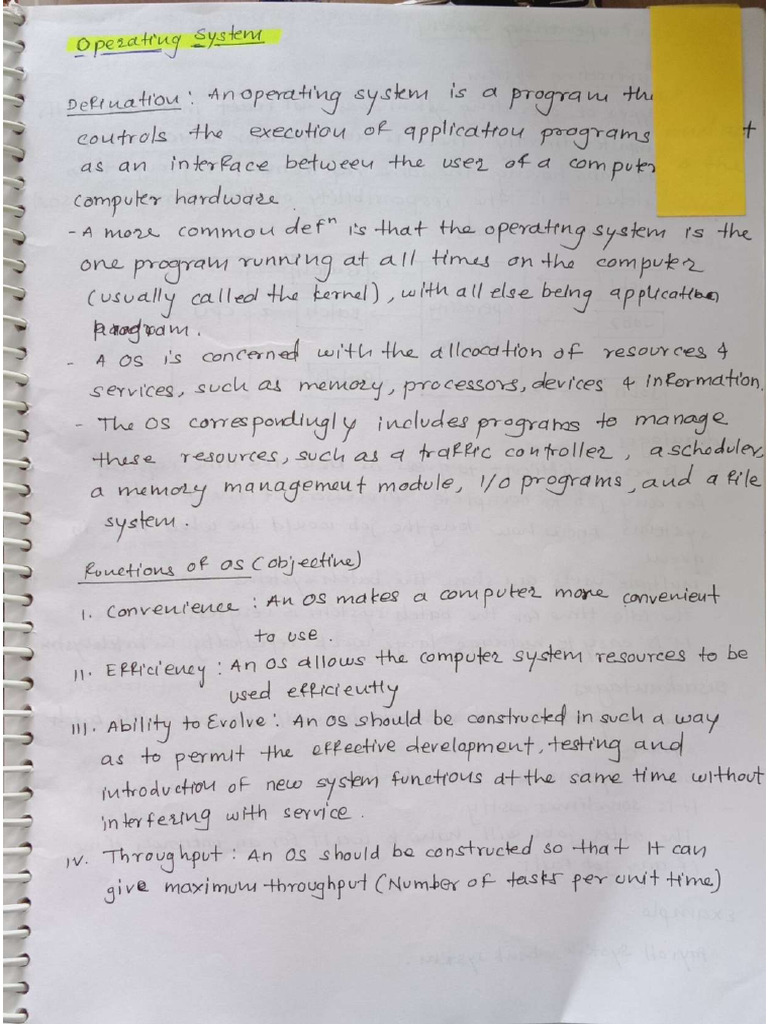 Operating System
Defination : An operating system is a program
controls the execution of application programs
as an interface between the user of a computer
computer hardware.
- A more common defⁿ is that the operating system is the
one program running at all times on the computer
(usually called the kernel), with all else being application
program.
- A OS is concerned with the allcocation of resources &
services, such as memory, processors, devices & information.
- The OS correspondingly includes programs to manage
these resources, such as a traffic controller, a scheduler,
a memory management module, I/O programs, and a file
system.
Functions of OS (objective)
I. Convenience : An OS makes a computer more convenient
to use.
II. Efficiency : An OS allows the computer system resources to be
used efficiently
III. Ability to Evolve : An OS should be constructed in such a way
as to permit the effective development, testing and
introduction of new system functions at the same time without
interfering with service.
IV. Throughput : An OS should be constructed so that It can
give maximum throughput (Number of tasks per unit time)